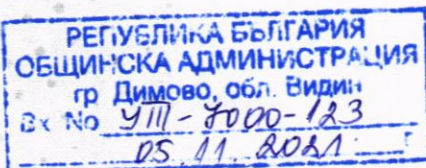 РЕПУБЛИКА БЪЛГАРИЯ
ОБЩИНСКА АДМИНИСТРАЦИЯ
гр Димово, обл. Видин
Вх No УIII-7000-123
05.11.2021 г